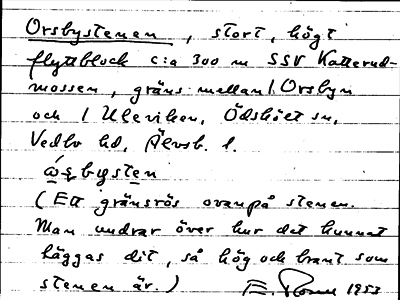 Orsbystenen, stort, högt
flyttblock c:a 300 m SSV Katterud-
mossen, gräns mellan 1 Orsbyn
och 1 Uleviken, Ödsköet sn,
Vedbo hd, Älvsb. l.
(Ett gränsrös ovanpå stenen.
Man undrar över hur det kunnat
läggas dit, så hög och brant som
stenen är.) 1953